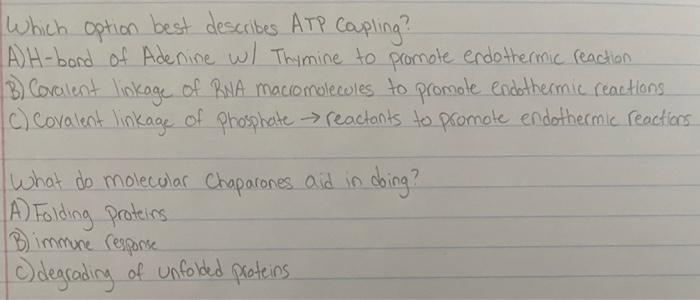 Which option best describes ATP Coupling?
A) H-bond of Adenine w/ Thymine to promote endothermic reaction
B) Covalent linkage of RNA macromolecules to promote endothermic reactions
C) Covalent linkage of phosphate → reactants to promote endothermic reactions
What do molecular Chaparones aid in doing?
A) Folding proteins
B) immune response
C) degrading of unfolded proteins